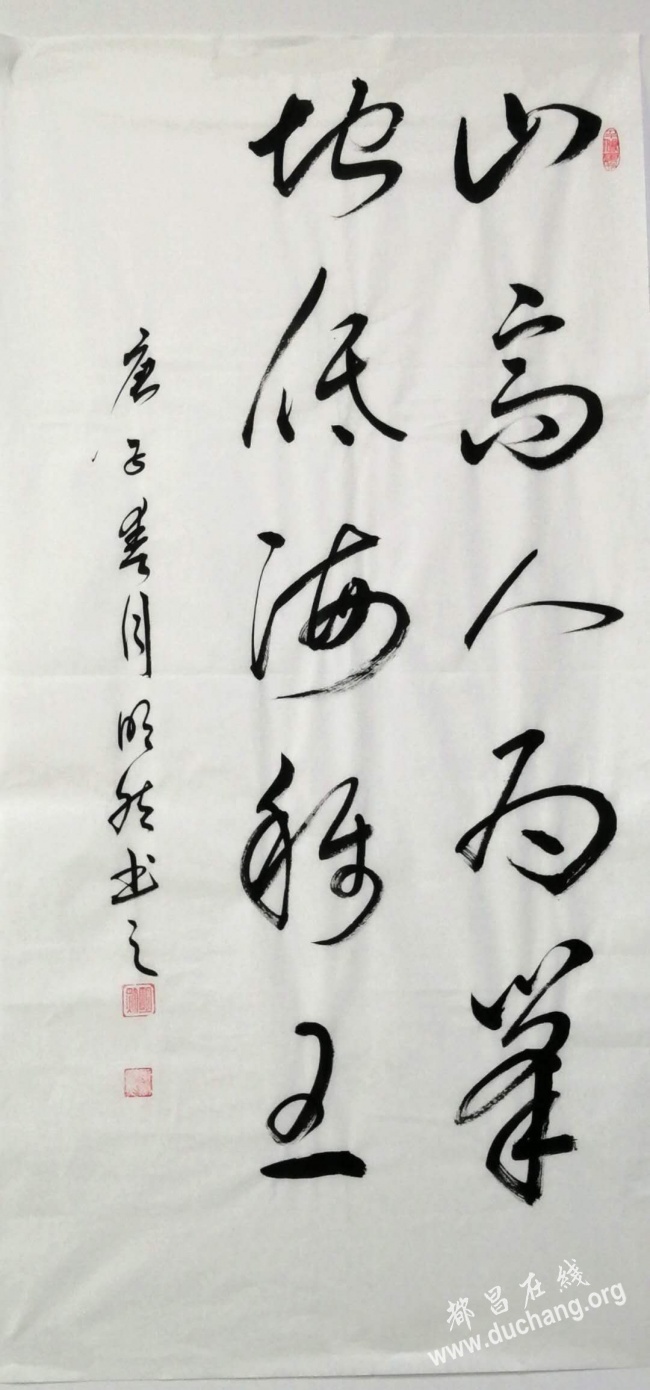 山高人为峰
地低海称王
庚子春月明然书之
都昌在线
www.duchang.org